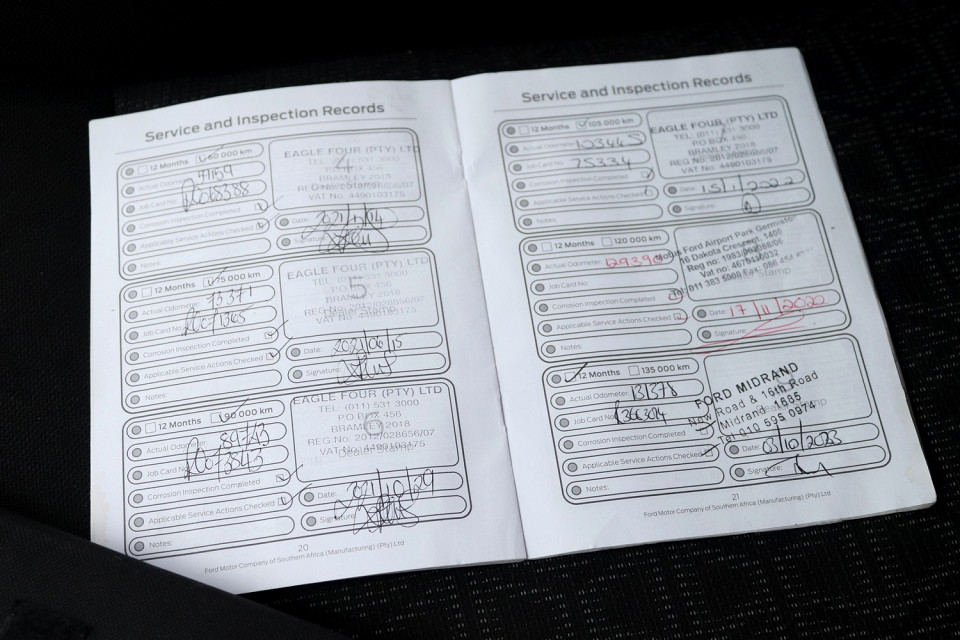 Service and Inspection Records
12 Months 60 000 km
Actual Odometer:
Job Card No:
Corrosion Inspection Completed
Applicable Service Actions Checked
Notes:
EAGLE FOUR (PTY) LTD
TEL: (011) 531 3000
P O BOX 456
BRAMLEY 2018
REG No: 2012/028656/07
VAT No: 4490103175
Date:
Signature:
12 Months 75 000 km
Actual Odometer: 73371
Job Card No:
Corrosion Inspection Completed
Applicable Service Actions Checked
Notes:
EAGLE FOUR (PTY) LTD
TEL: (011) 531 3000
P O BOX 456
BRAMLEY 2018
REG No: 2012/028656/07
VAT No: 4490103175
Date: 2021/06/15
Signature:
12 Months 90 000 km
Actual Odometer:
Job Card No:
Corrosion Inspection Completed
Applicable Service Actions Checked
Notes:
EAGLE FOUR (PTY) LTD
TEL: (011) 531 3000
P.O BOX 456
BRAMLEY 2018
REG No: 2012/028656/07
VAT No: 4490103175
Dealer Stamp
Date: 2021/10/29
Signature:
20
Ford Motor Company of Southern Africa (Manufacturing) (Pty) Ltd
Service and Inspection Records
12 Months 105 000 km
Actual Odometer: 103445
Job Card No: 75334
Corrosion Inspection Completed
Applicable Service Actions Checked
Notes:
EAGLE FOUR (PTY) LTD
TEL: (011) 531 3000
P O BOX 456
BRAMLEY 2018
REG No: 2012/028656/07
VAT No: 4490103175
Date: 15/1/2022
Signature:
12 Months 120 000 km
Actual Odometer: 129390
Job Card No:
Corrosion Inspection Completed
Applicable Service Actions Checked
Notes:
Ford Airport Park Germiston
16 Dakota Crescent, 1400
Reg no:
Vat no:
Tel: 011 383 5000
Date: 17/11/2022
Signature:
12 Months 135 000 km
Actual Odometer: 131378
Job Card No:
Corrosion Inspection Completed
Applicable Service Actions Checked
Notes:
FORD MIDRAND
New Road & 16th Road
Midrand 1685
Tel 010 595 0974
Date: 03/10/2023
Signature:
21
Ford Motor Company of Southern Africa (Manufacturing) (Pty) Ltd